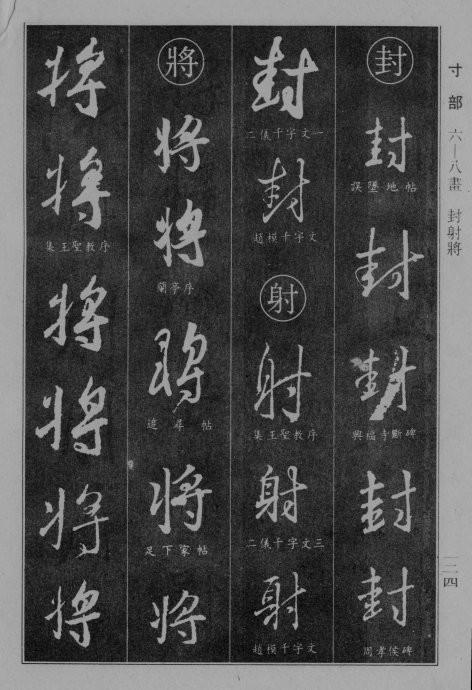 寸部 六—八畫 封射將
一二四
封
封
誤墮地帖
封
封
興福寺斷碑
封
封
周孝侯碑
封
二儀千字文一
封
趙模千字文
射
射
集王聖教序
射
二儀千字文三
射
趙模千字文
將
將
將
蘭亭序
將
追尋帖
將
足下家帖
將
將
將
集王聖教序
將
將
將
將